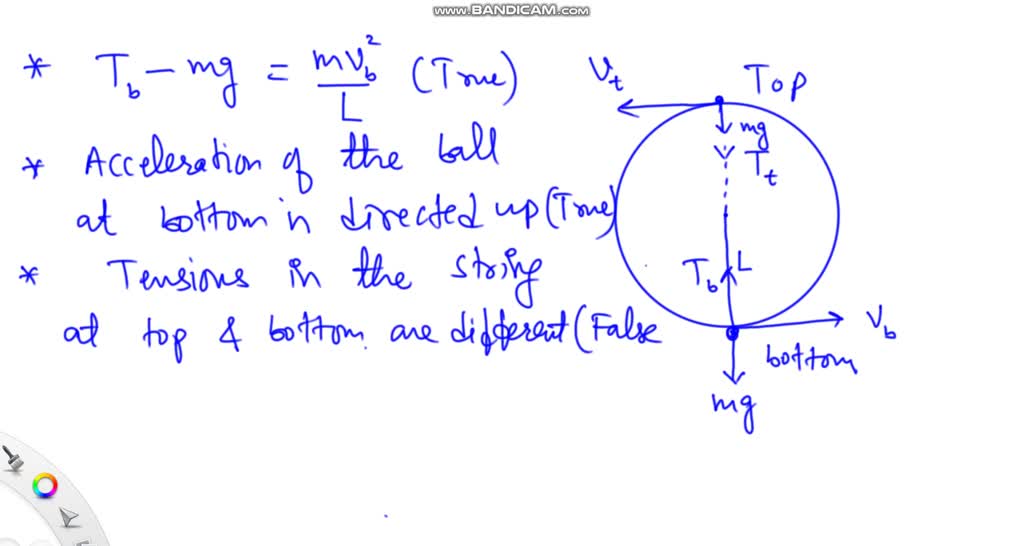 www.BANDICAM.com
* T_b - mg = mv_b²/L (True)
* Acceleration of the ball
at bottom is directed up (True)
* Tensions in the string
at top & bottom are different (False
V_t
Top
mg
T_t
T_b
L
V_b
bottom
mg